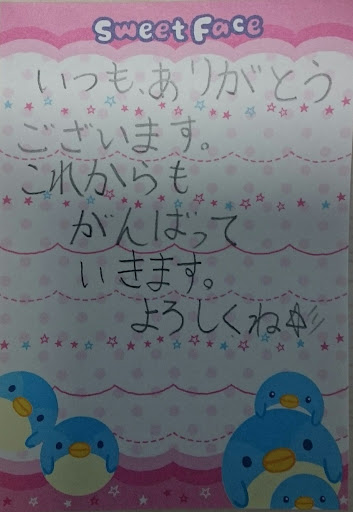 Sweet Face
いつも、ありがとう
ございます。
これからも
がんばって
いきます。
よろしくね☆彡